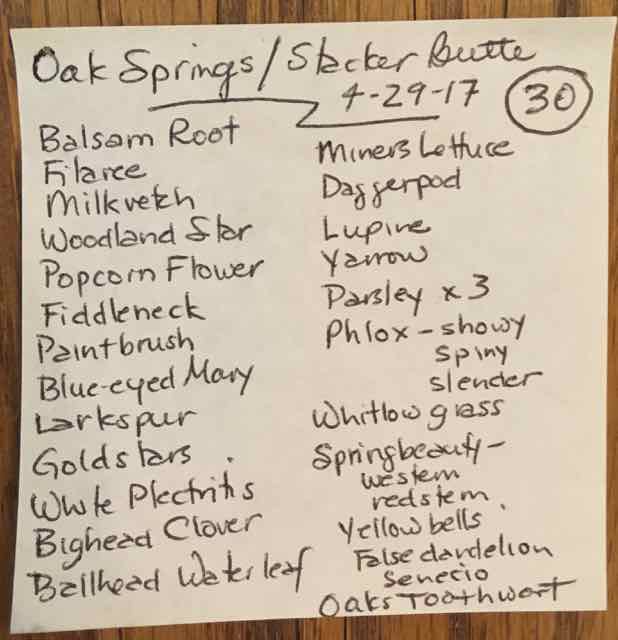 Oak Springs/Stacker Butte
4-29-17 30
Balsam Root
Filaree
Milkvetch
Woodland Star
Popcorn Flower
Fiddleneck
Paintbrush
Blue-eyed Mary
Larkspur
Goldstars
White Plectritis
Bighead Clover
Ballhead Waterleaf
Miners Lettuce
Daggerpod
Lupine
Yarrow
Parsley x 3
Phlox - showy
spiny
slender
Whitlowgrass
Springbeauty -
western
redstem
Yellowbells
False dandelion
Senecio
Oaks Toothwort